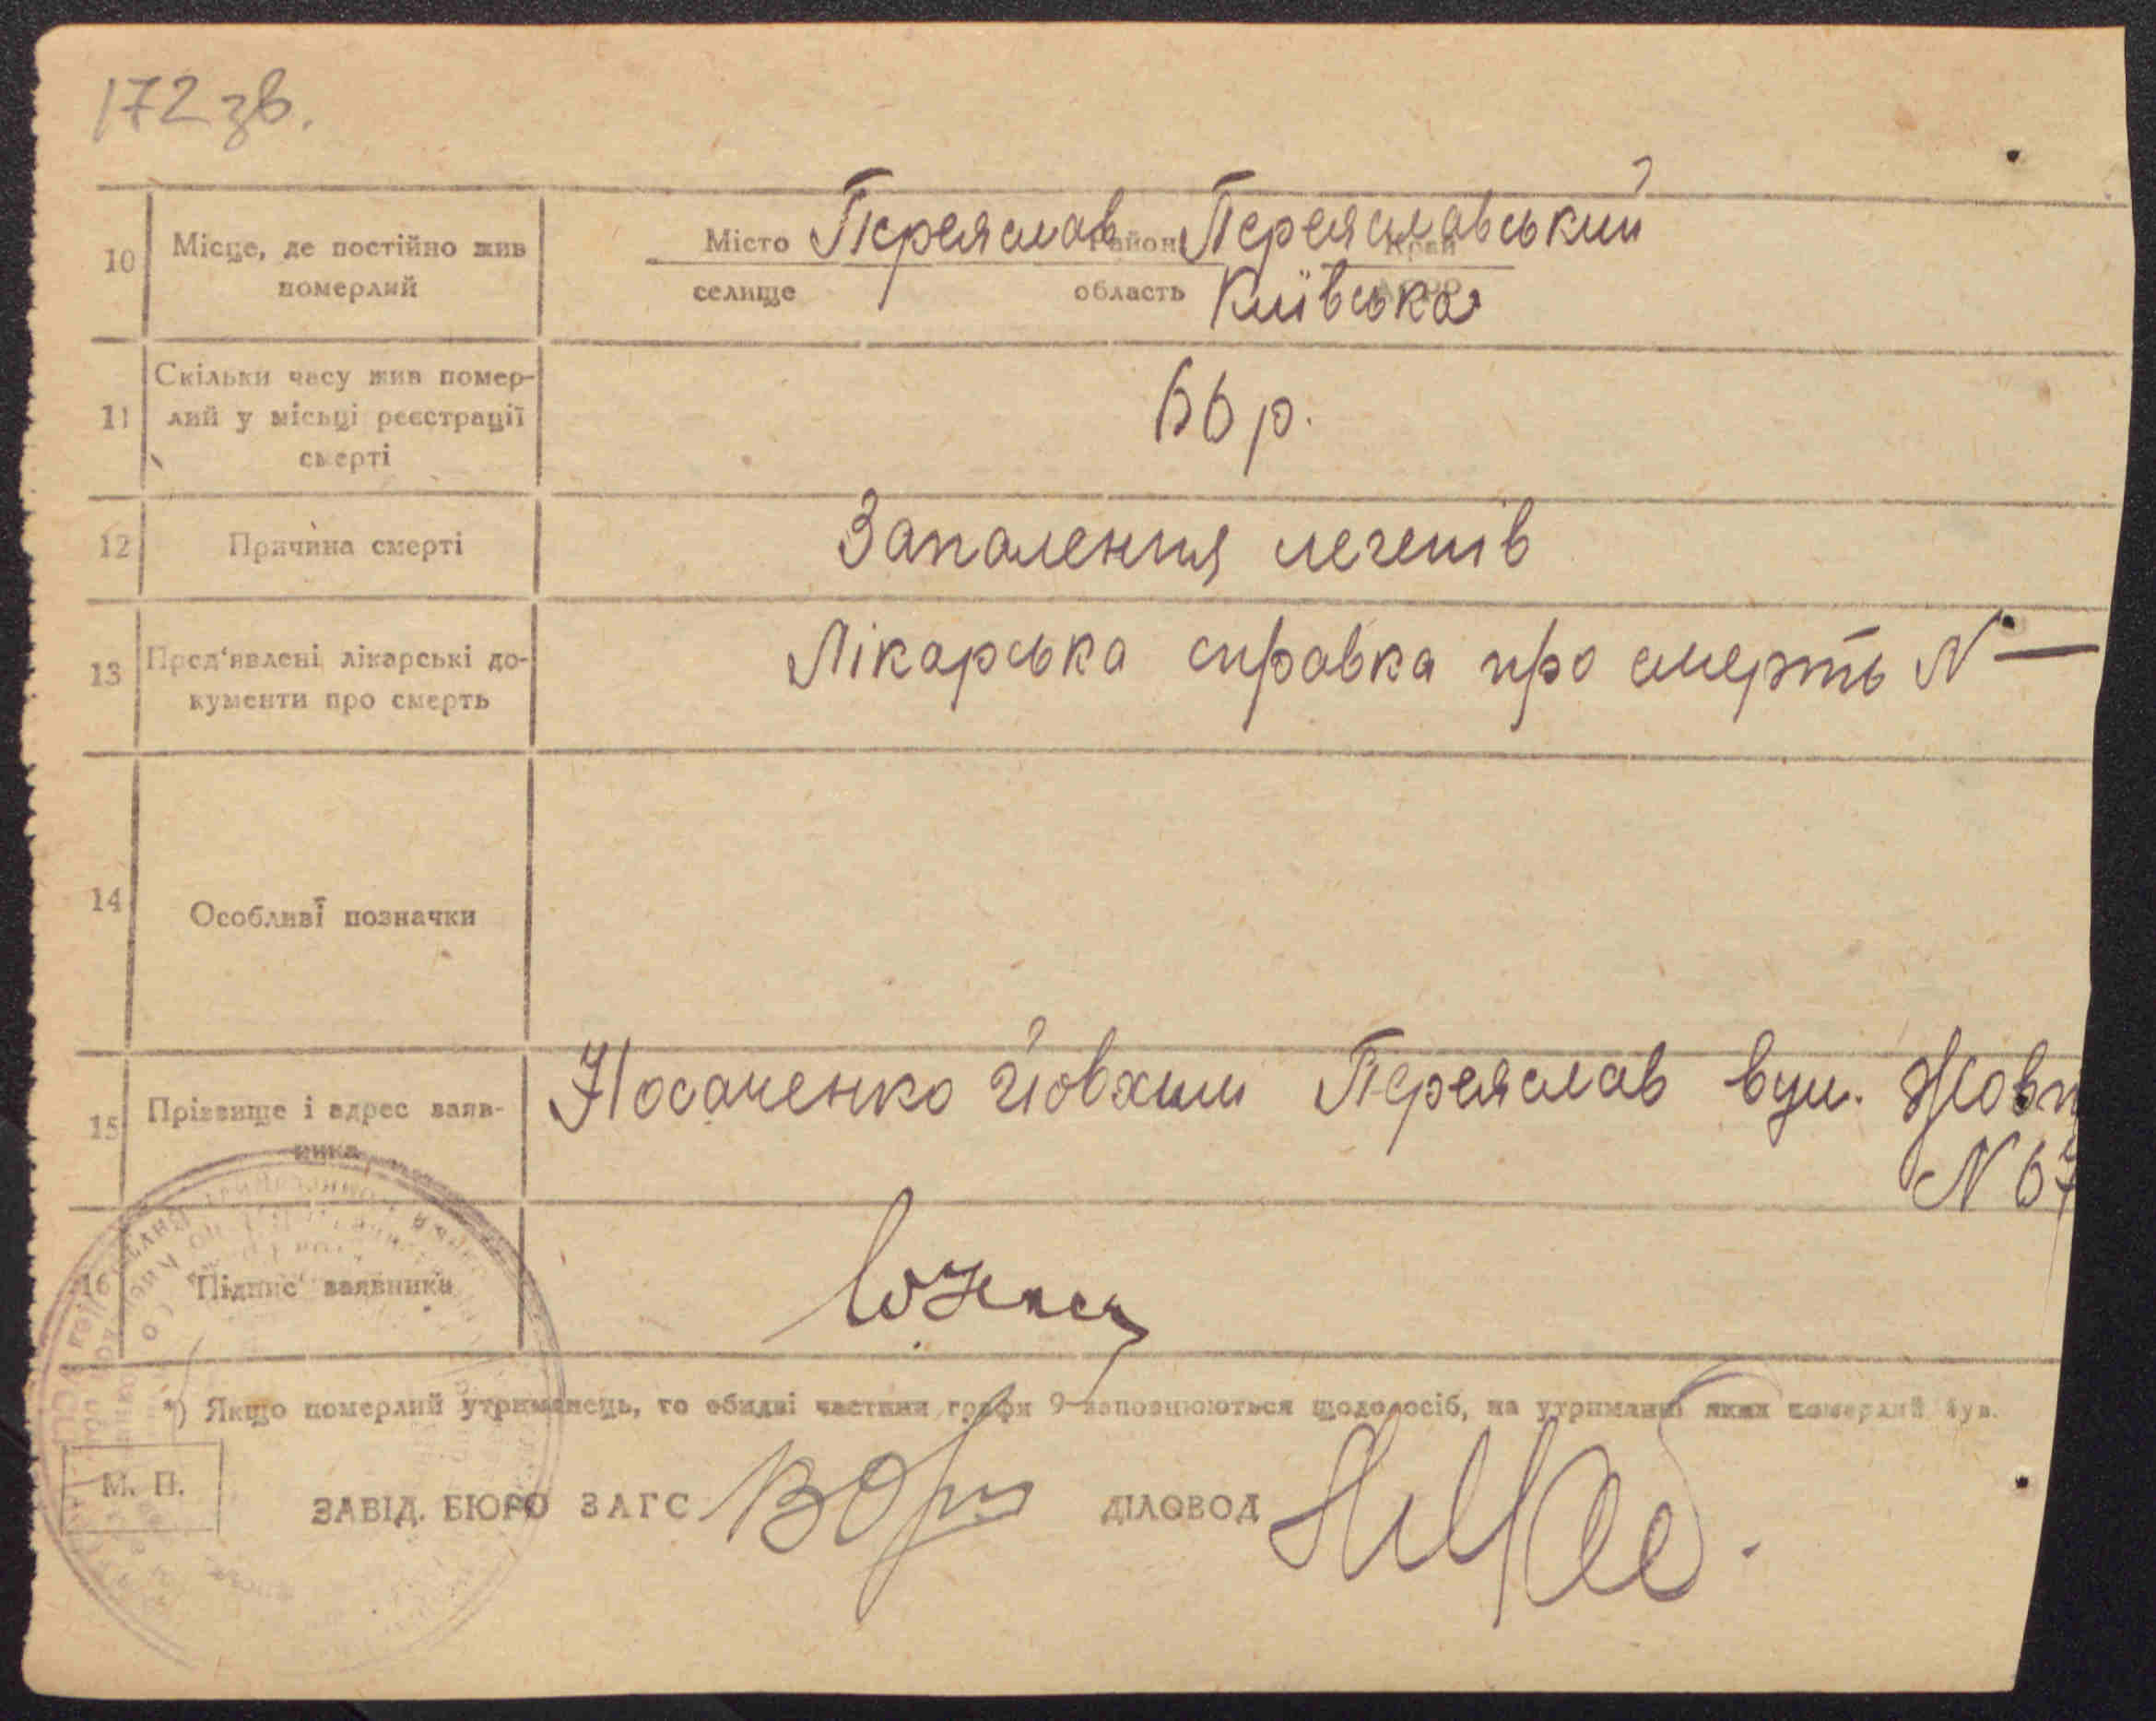 172 зв.
10 Місце, де постійно жив померлий
Місто Переяслав Район Переяславський Край
селище область Київська АСРР
11 Скільки часу жив помер-
лий у місьці реєстрації
смерті
66 р.
12 Причина смерті Запалення легенів
13 Пред'явлені лікарські до-
кументи про смерть
Лікарська справка про смерть N —
14 Особливі позначки
15 Прізвище і адрес заяв-
ника
Носаченко Йовхим Переяслав вул. Жовт
N 67
16 Підпис заявника
*) Якщо померлий утриманець, то обидві частини графи 9 заповнюються щодо осіб, на утриманні яких померлий був.
М. П.
ЗАВІД. БЮРО ЗАГС ДІЛОВОД